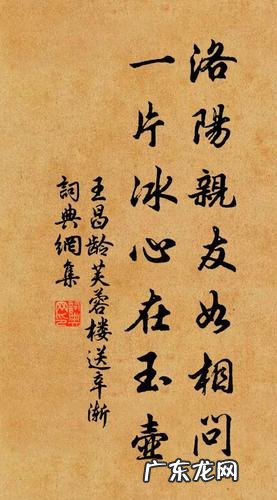 洛陽親友如相問
一片冰心在玉壺
王昌龄芙蓉楼送辛渐
詞典網集
广东龙网